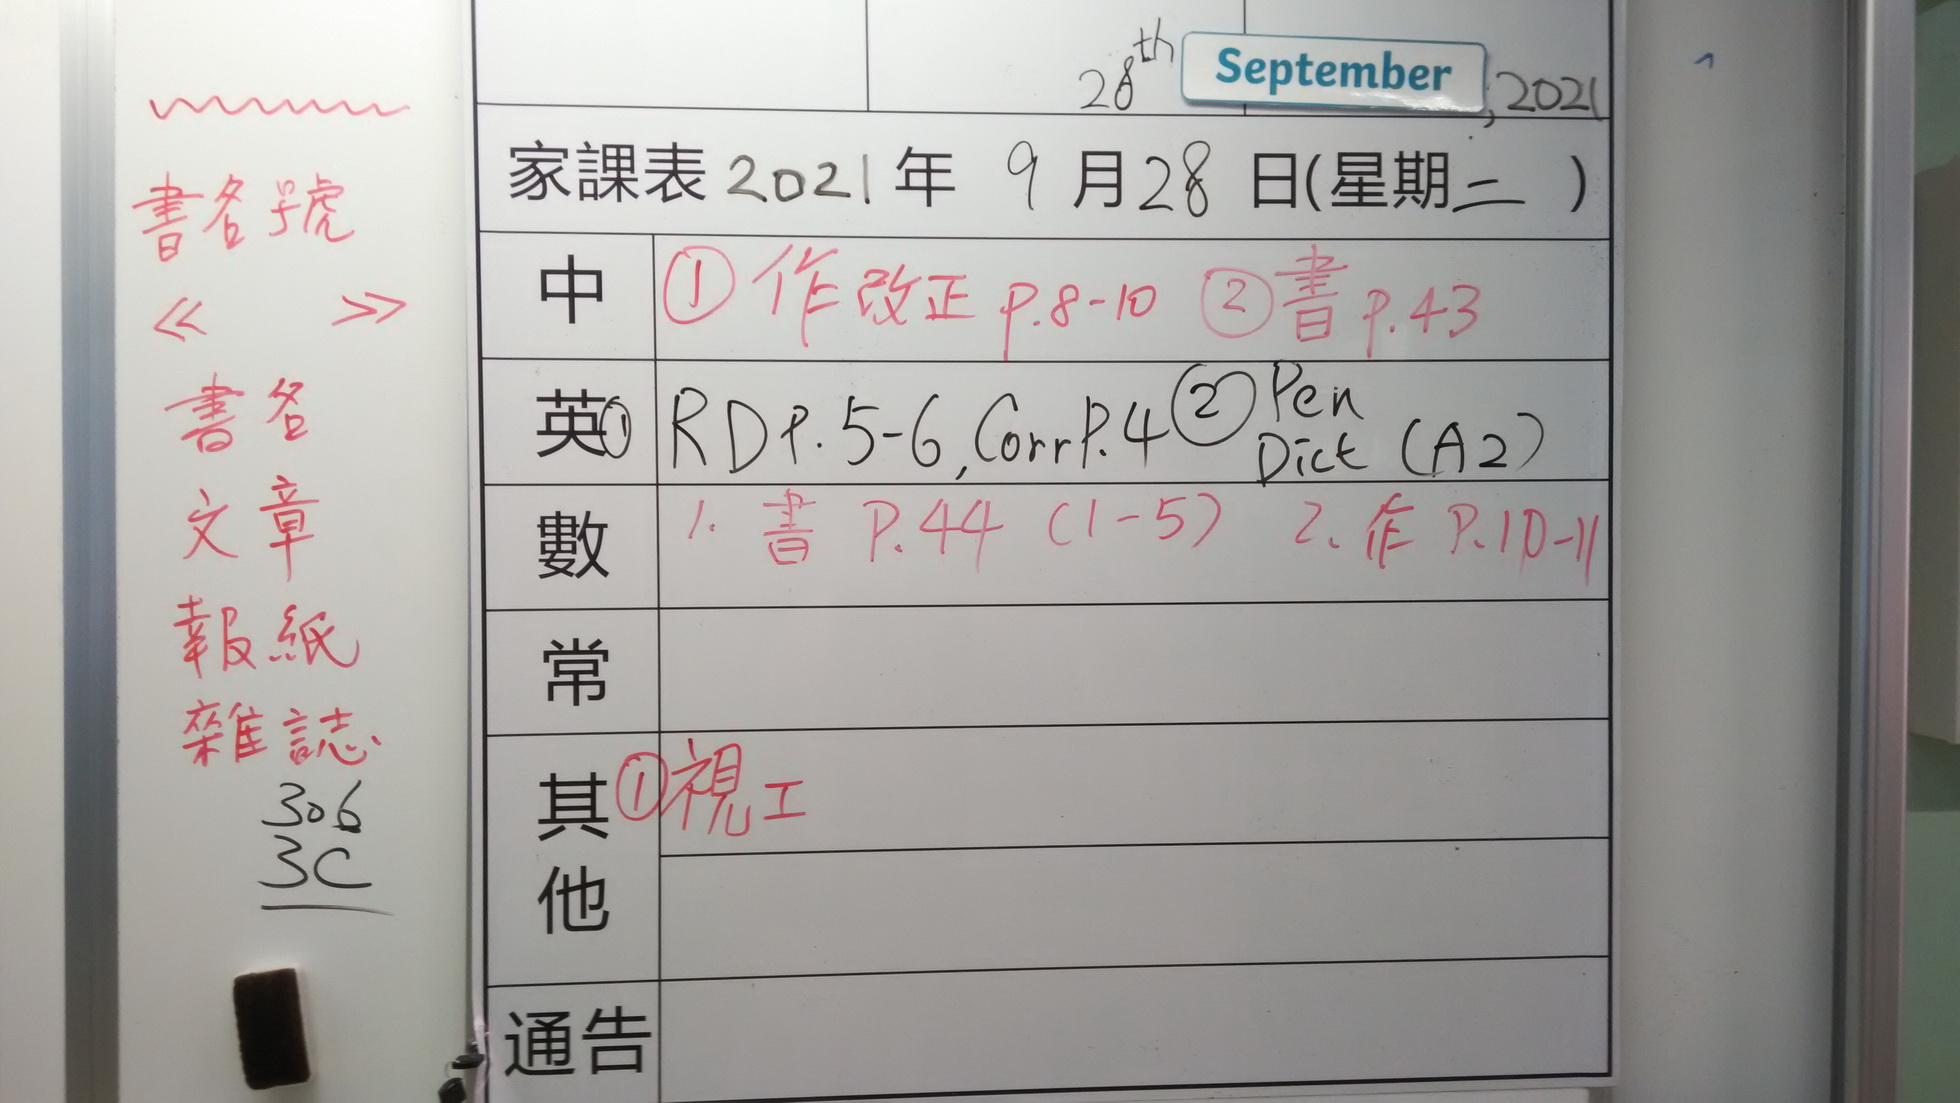 書名號
《 》
書名
文章
報紙
雜誌
306
3C
28th September, 2021
家課表 2021 年 9 月 28 日(星期二 )
中 ① 作改正 p.8-10 ② 書 p.43
英 ① RD P.5-6, Corr P.4 ② Pen Dict (A2)
數 1. 書 P.44 (1-5) 2. 作 P.10-11
常
其他 ① 視工
通告